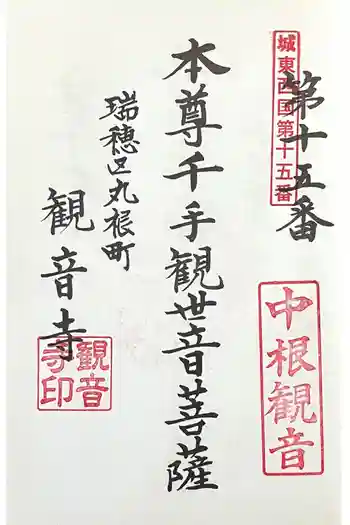 城東西国第十五番
第十五番
中根観音
本尊千手観世音菩薩
瑞穂区丸根町
観音寺
観音寺印